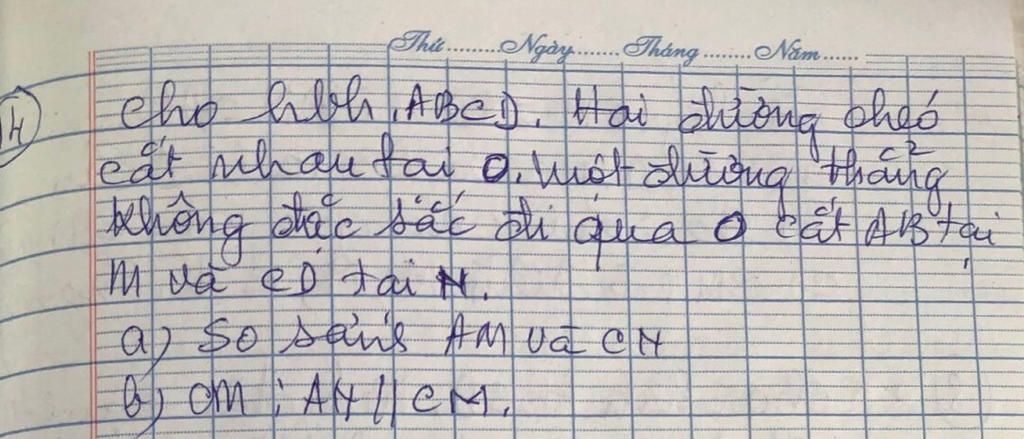 Thứ.........Ngày.........Tháng.........Năm.......
4) Cho hbh ABCD. Hai đường chéo
cắt nhau tại O. Một đường thẳng
không đặc sắc đi qua O cắt AB tại
M và CD tại N.
a) So sánh AM và CN
b) CM : AN // CM.